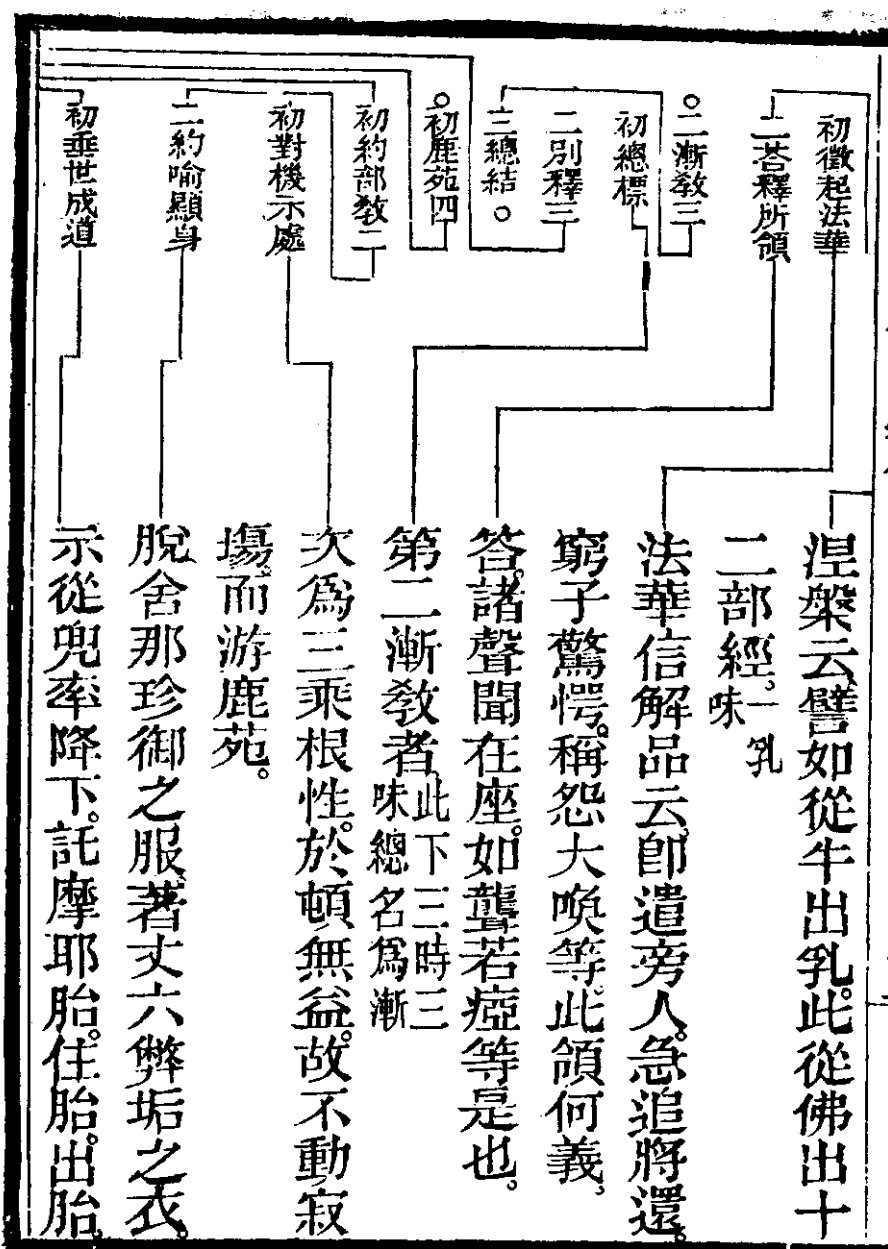 初徵起法華
二荅釋所領
○二漸教三
初總標
二別釋三
三總結○
○初鹿苑四
初約部教二
初對機示處
二約喻顯身
初垂世成道
涅槃云、譬如從牛出乳。此從佛出十
二部經。一乳
味
法華信解品云、卽遣旁人。急追將還。
窮子驚愕。稱怨大喚等。此領何義、
答。諸聲聞在座。如聾若瘂等是也。
第二漸教者、此下三時三
味總名爲漸
次爲三乘根性。於頓無益。故不動寂
塲而游鹿苑。
脫舍那珍御之服、著丈六弊垢之衣。
示從兜率降下。託摩耶胎。住胎。出胎。